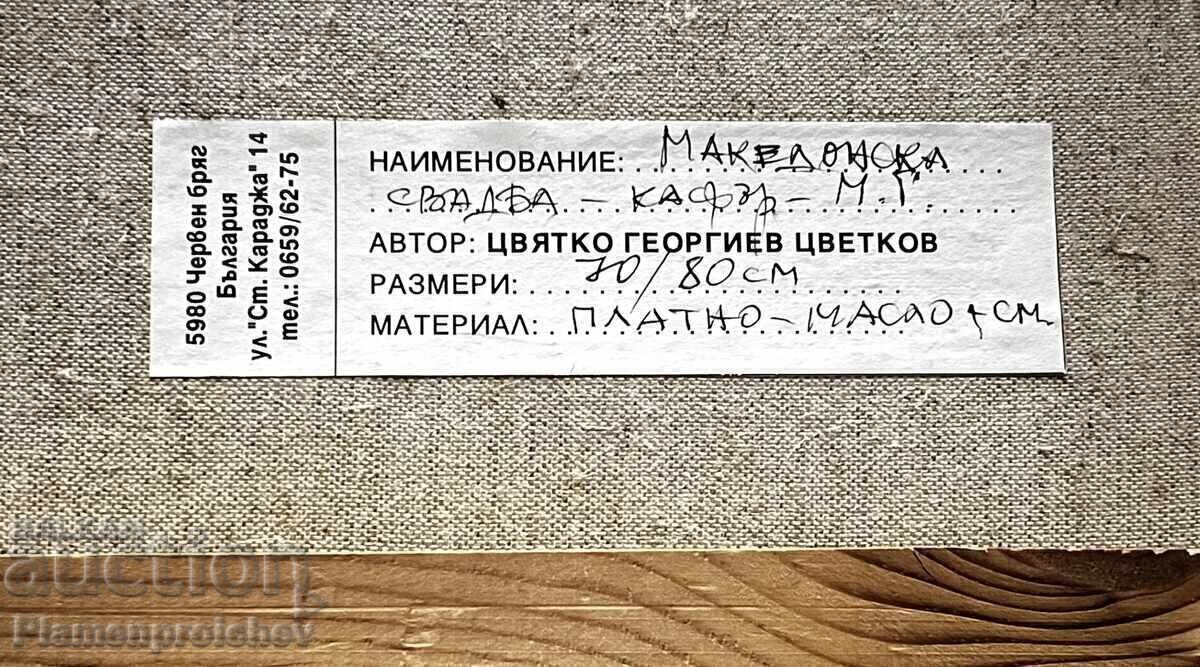 5980 Червен бряг
България
ул."Ст. Караджа" 14
тел.: 0659/62-75
НАИМЕНОВАНИЕ: МАКЕДОНСКА
СВАДБА – КАФЪР – М.Г.
АВТОР: ЦВЯТКО ГЕОРГИЕВ ЦВЕТКОВ
РАЗМЕРИ: 70/80 см
МАТЕРИАЛ: ПЛАТНО – МАСЛО, СМ.
BALKAN
auction
Plamenproichev